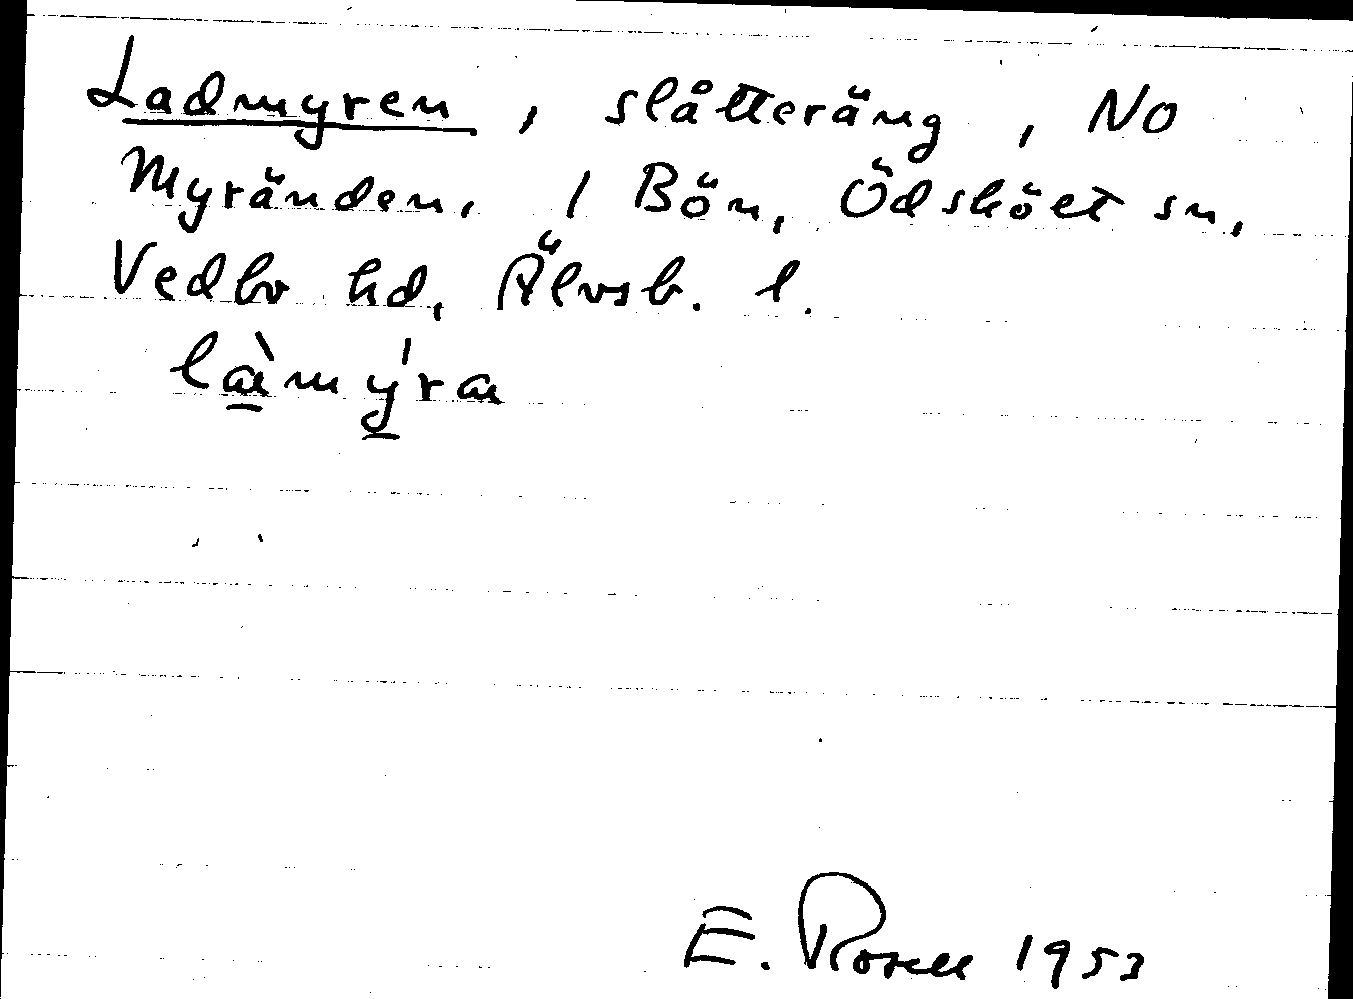 Ladmyren, slåtteräng, NO
Myränden, 1 Bön, Ödsköet sn,
Vedbo hd, Älvsb. l.
làmýra
E. Rosell 1953